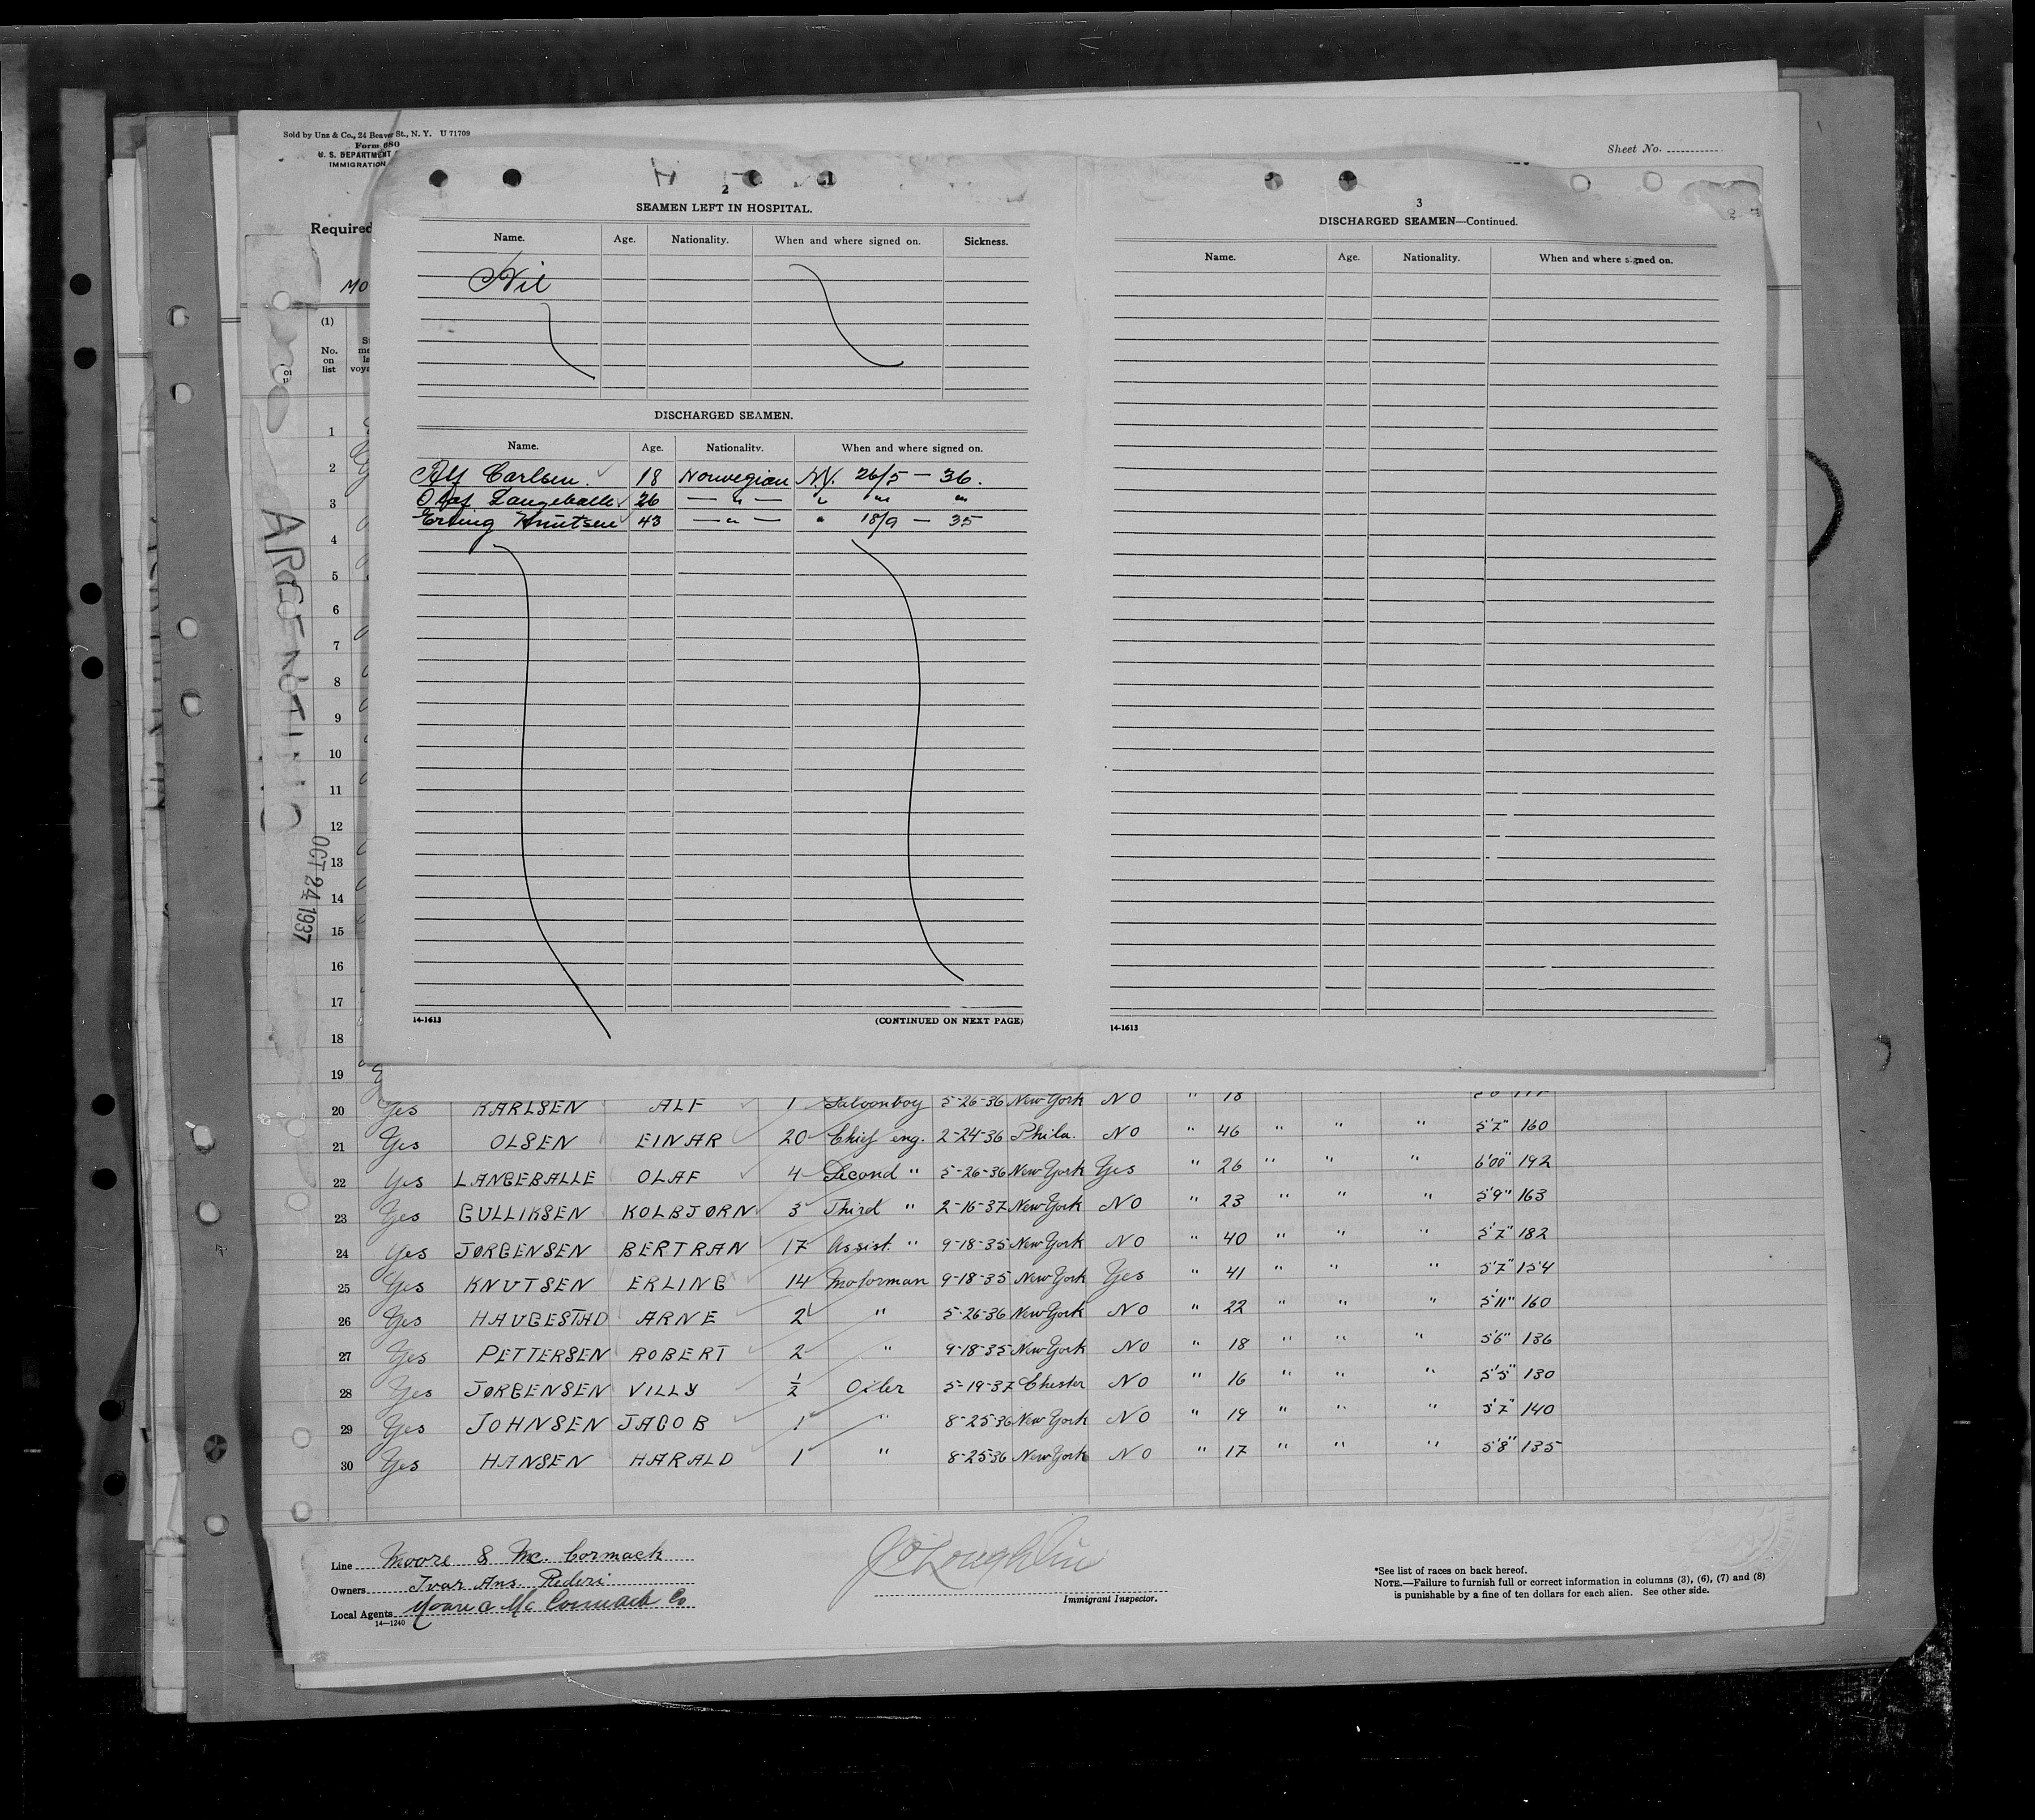 Sold by Unz & Co., 24 Beaver St., N. Y. U 71709
Form 680
U. S. DEPARTMENT
IMMIGRATION
Sheet No.
Required
MO
(1)
No. on list
2
SEAMEN LEFT IN HOSPITAL.
Name. Age. Nationality. When and where signed on. Sickness.
Nil
DISCHARGED SEAMEN.
Name. Age. Nationality. When and where signed on.
Alf Carlsen. 18 Norwegian N.Y. 26/5 — 36.
Olaf Langeballe 26 — " — " " "
Erling Knutsen 43 — " — " 18/9 — 35
(CONTINUED ON NEXT PAGE)
14-1613
3
DISCHARGED SEAMEN—Continued.
Name. Age. Nationality. When and where signed on.
14-1613
ARGENTINO
OCT 24 1937
1
2
3
4
5
6
7
8
9
10
11
12
13
14
15
16
17
18
19
20 Yes KARLSEN ALF 1 Saloonboy 5-26-36 New York NO " 18
21 Yes OLSEN EINAR 20 Chief eng. 2-24-36 Phila. NO " 46 " " " 5'7" 160
22 Yes LANGEBALLE OLAF 4 Second " 5-26-36 New York Yes " 26 " " " 6'00" 192
23 Yes GULLIKSEN KOLBJØRN 3 Third " 2-16-37 New York NO " 23 " " " 5'9" 163
24 Yes JØRGENSEN BERTRAN 17 Assist. " 9-18-35 New York NO " 40 " " " 5'7" 182
25 Yes KNUTSEN ERLING 14 Motorman 9-18-35 New York Yes " 41 " " " 5'7" 154
26 Yes HAUGESTAD ARNE 2 " 5-26-36 New York NO " 22 " " " 5'11" 160
27 Yes PETTERSEN ROBERT 2 " 9-18-35 New York NO " 18 " " " 5'6" 136
28 Yes JØRGENSEN VILLY 1/2 Oiler 5-19-37 Chester NO " 16 " " " 5'5" 130
29 Yes JOHNSEN JACOB 1 " 8-25-36 New York NO " 19 " " " 5'7" 140
30 Yes HANSEN HARALD 1 " 8-25-36 New York NO " 17 " " " 5'8" 135
Line Moore & Mc. Cormack
Owners Ivar Ans. Rederi
Local Agents Moore & Mc Cormack Co
14—1240
J O'Loughlin
Immigrant Inspector.
*See list of races on back hereof.
NOTE.—Failure to furnish full or correct information in columns (3), (6), (7) and (8)
is punishable by a fine of ten dollars for each alien. See other side.